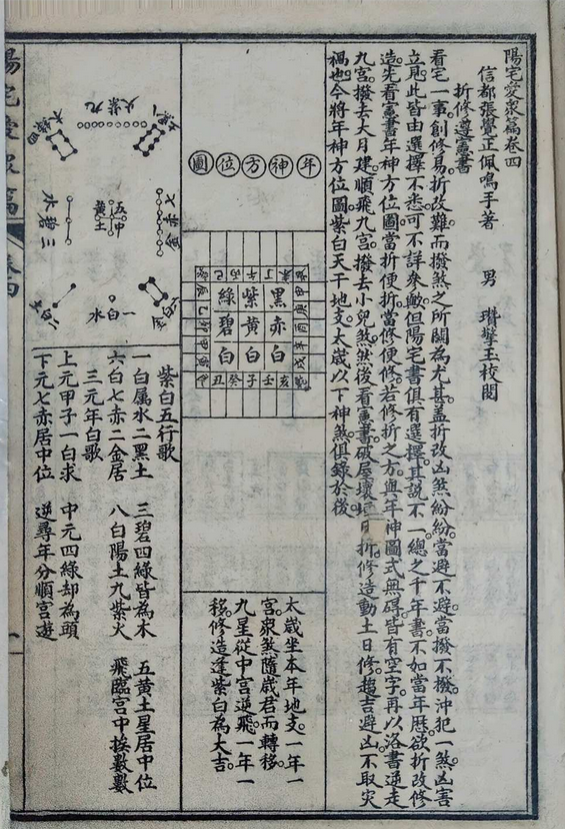 陽宅愛衆篇卷四
信都張覺正佩鳴手著　男　瓚擎玉校閱
折修遵憲書
看宅一事創修易折改難而撥煞之所關為尤甚蓋折改凶煞紛紛當避不避當撥不撥沖犯一煞凶害
立見此皆由選擇不悉可不詳參歟但陽宅書俱有選擇其說不一總之千年書不如當年歷欲折改修
造先看憲書年神方位圖當折便折當修便修若修折之方與年神圖式無碍皆有空字再以洛書逆走
九宮撥去大月建順飛九宮撥去小兒煞然後看憲書破屋壞垣日折修造動土日修趨吉避凶不取灾
禍也今將年神方位圖紫白天干地支太歲以下神煞俱錄於後
年神方位圖
巳丙午丁未
綠紫黑
碧黃赤
白白白
丑癸子壬亥
太歲坐本年地支一年一
宮衆煞隨歲君而轉移
九星從中宮逆飛一年一
移修造逢紫白為大吉
九紫火
七赤金
五中黃土
三碧木
一白水
紫白五行歌
一白屬水二黑土　三碧四綠皆為木　五黃土星居中位
六白七赤二金居　八白陽土九紫火　飛臨宮中挨數數
三元年白歌
上元甲子一白求　中元四綠却為頭
下元七赤居中位　逆尋年分順宮遊
陽宅愛衆篇
卷四
一